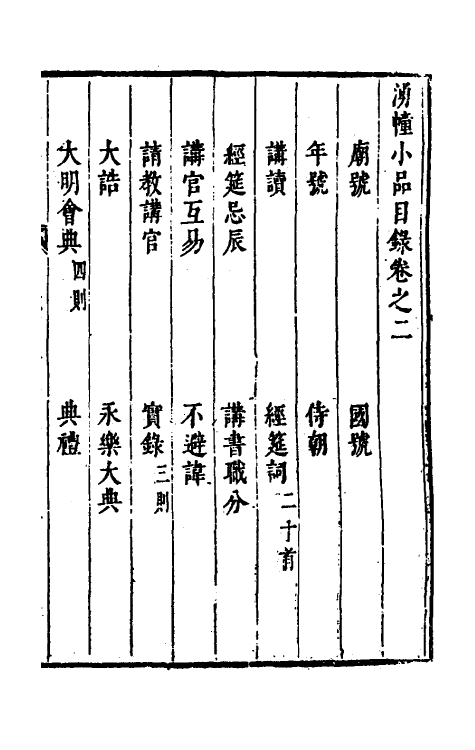 湧幢小品目錄卷之二
廟號 國號
年號 侍朝
講讀 經筵詞二十首
經筵忌辰 講書職分
講官互易 不避諱
請教講官 實錄三則
大誥 永樂大典
大明會典四則 典禮